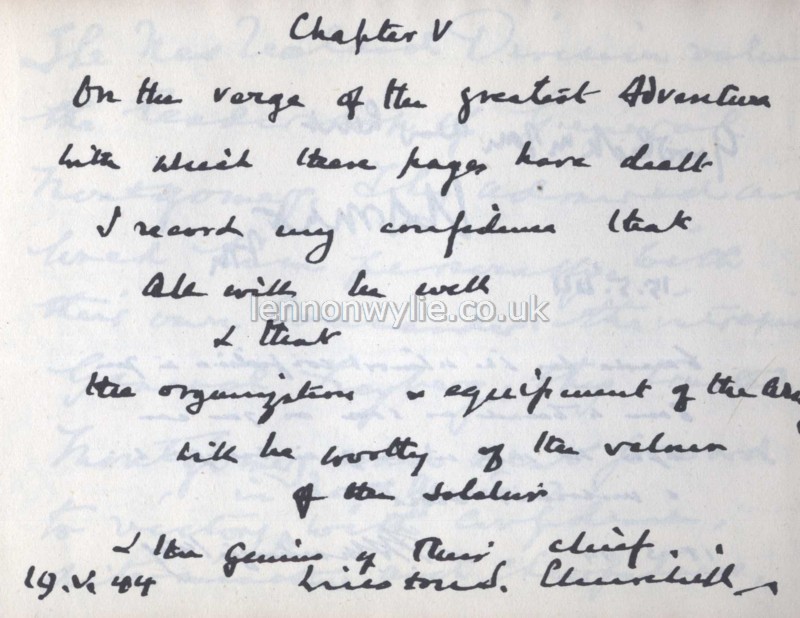 Chapter V
On the verge of the greatest Adventure
with which these pages have dealt
I record my confidence that
all will be well
lennonwylie.co.uk
& that
the organization & equipment of the Army
will be worthy of the valour
of the soldiers
& the genius of their chief.
19.V.44 Winston S. Churchill